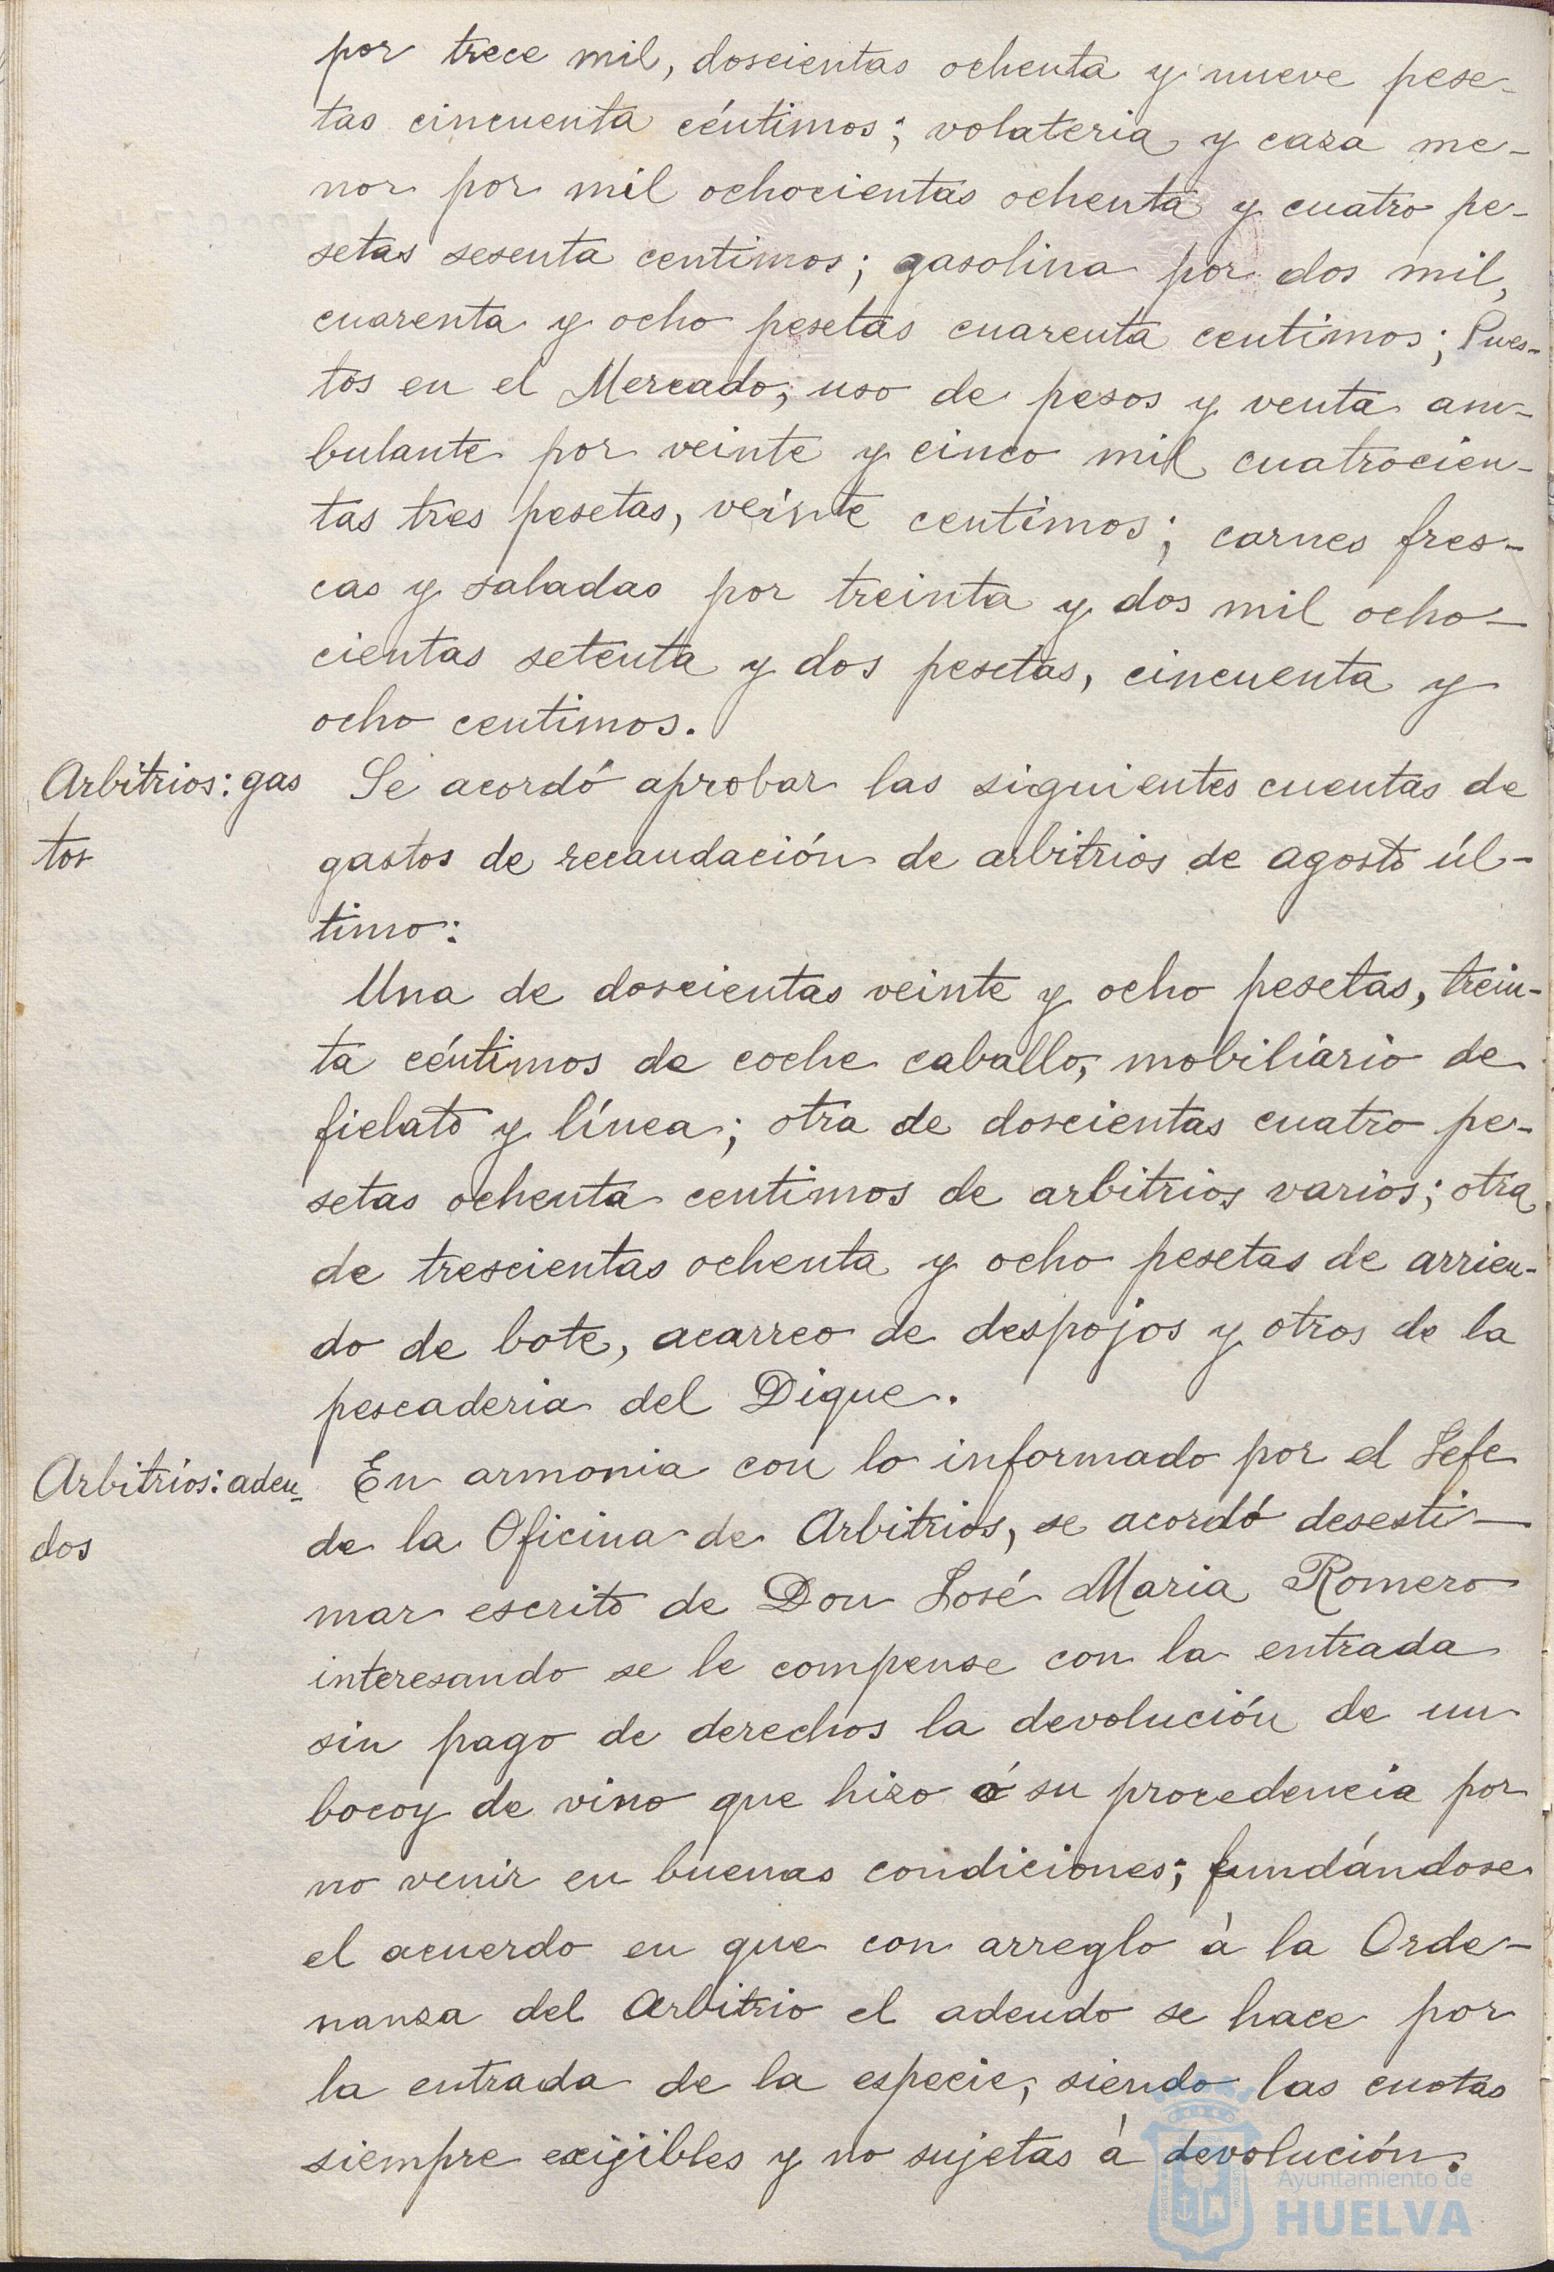 por trece mil, doscientas ochenta y nueve pese-
tas cincuenta céntimos; volateria y caza me-
nor por mil ochocientas ochenta y cuatro pe-
setas sesenta centimos; gasolina por dos mil,
cuarenta y ocho pesetas cuarenta centimos; Pues-
tos en el Mercado, uso de pesos y venta am-
bulante por veinte y cinco mil cuatrocien-
tas tres pesetas, veinte centimos; carnes fres-
cas y saladas por treinta y dos mil ocho-
cientas setenta y dos pesetas, cincuenta y
ocho centimos.
Arbitrios: gas
tos
Se acordó aprobar las siguientes cuentas de
gastos de recaudación de arbitrios de agosto úl-
timo:
Una de doscientas veinte y ocho pesetas, trein-
ta céntimos de coche caballo, mobiliario de
fielato y línea; otra de doscientas cuatro pe-
setas ochenta centimos de arbitrios varios; otra
de trescientas ochenta y ocho pesetas de arrien-
do de bote, acarreo de despojos y otros de la
pescaderia del Dique.
Arbitrios: adeu-
dos
En armonia con lo informado por el Jefe
de la Oficina de Arbitrios, se acordó desesti-
mar escrito de Don José Maria Romero
interesando se le compense con la entrada
sin pago de derechos la devolución de un
bocoy de vino que hizo á su procedencia por
no venir en buenas condiciones; fundándose
el acuerdo en que con arreglo à la Orde-
nanza del Arbitrio el adeudo se hace por
la entrada de la especie, siendo las cuotas
siempre exigibles y no sujetas à devolución.
Ayuntamiento de
HUELVA